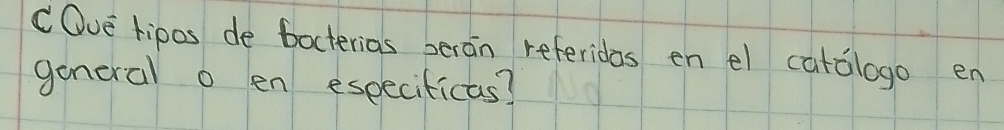 ¿Qué tipos de bacterias serán referidas en el catálogo en
general o en especificas?